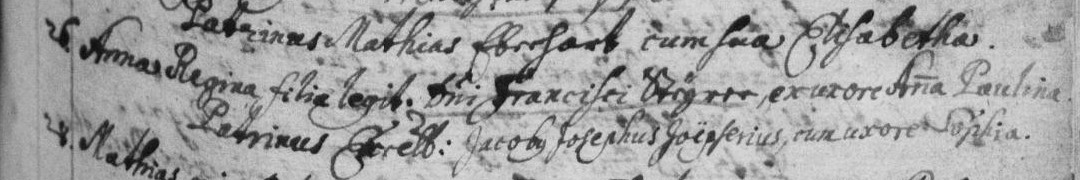 Patrinus Mathias Eberhart cum sua Elisabetha.
26. Anna Regina filia legit. Dni Francisci Steyrer, ex uxore Aña Paulina.
Patrinus Excell: Jacobg Josephus cum uxore Sophia.
28. Mathias